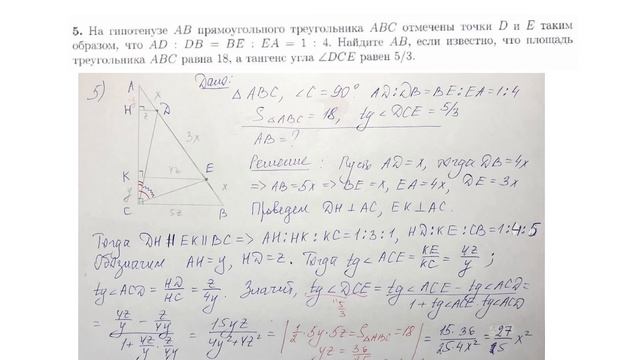 5. На гипотенузе AB прямоугольного треугольника ABC отмечены точки D и E таким
образом, что AD : DB = BE : EA = 1 : 4. Найдите AB, если известно, что площадь
треугольника ABC равна 18, а тангенс угла ∠DCE равен 5/3.
5)
Дано:
△ABC, ∠C = 90° AD:DB = BE:EA = 1:4
S△ABC = 18, tg∠DCE = 5/3
AB = ?
Решение: Пусть AD = x, тогда DB = 4x
=> AB = 5x => BE = x, EA = 4x, DE = 3x
Проведем DH⊥AC, EK⊥AC.
A
H
x
D
z
3x
K
4z
E
y
x
C
5z
B
Тогда DH || EK || BC => AH:HK:KC = 1:3:1, HD:KE:CB = 1:4:5
Обозначим AH = y, HD = z. Тогда tg∠ACE = KE/KC = 4z/y;
tg∠ACD = HD/HC = z/4y. Значит, tg∠DCE = tg∠ACE - tg∠ACD / 1 + tg∠ACE·tg∠ACD =
5/3
= 4z/y - z/4y / 1 + 4z/y · z/4y = 15yz / 4y² + 4z² = | 1/2 · 5y · 5z = S△ABC = 18 | = 15·36 / 25·4x² = 27
yz = 36
x²